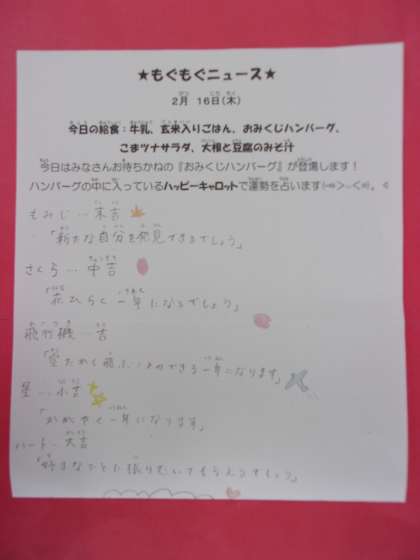 ★もぐもぐニュース★
2月 16日(木)
今日の給食:牛乳、玄米入りごはん、おみくじハンバーグ、
ごまツナサラダ、大根と豆腐のみそ汁
今日はみなさんお待ちかねの『おみくじハンバーグ』が登場します!
ハンバーグの中に入っているハッピーキャロットで運勢を占います
もみじ…末吉
「新たな自分を発見できるでしょう」
さくら…中吉
「花ひらく一年になるでしょう」
飛行機…吉
「空たかく飛ぶことのできる一年になります」
星…小吉
「かがやく一年になります」
ハート…大吉
「好きなひとに振りむいてもらえるでしょう」